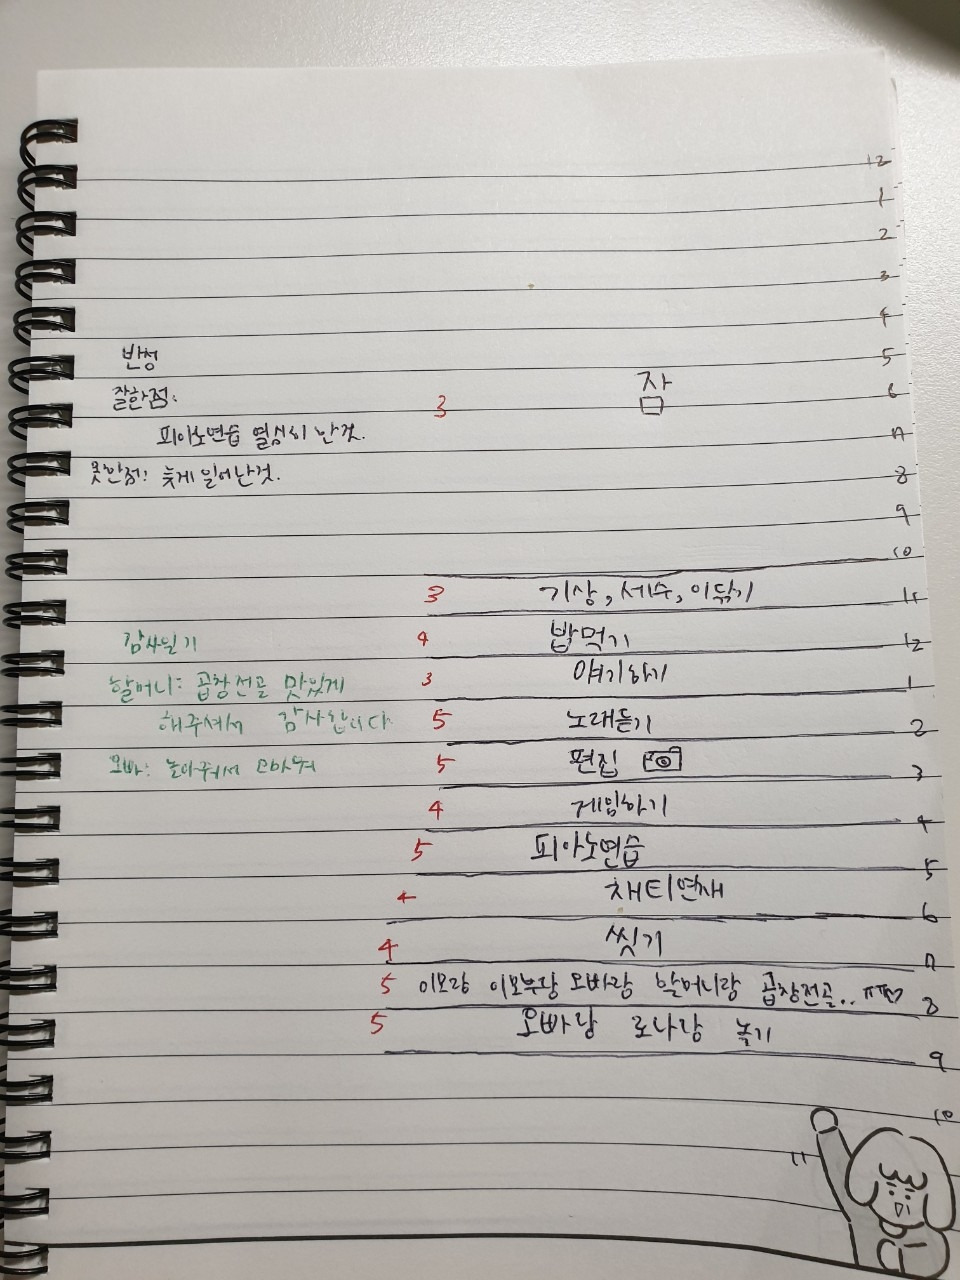 12
1
2
3
4
반성 5
잘한점: 3 잠 6
피아노연습 열심히 한것. 7
못한점: 늦게 일어난것. 8
9
10
3 기상, 세수, 이닦기 11
감사일기 4 밥먹기 12
할머니: 곱창전골 맛있게 3 얘기하기 1
해주셔서 감사합니다 5 노래듣기 2
오빠: 놀아줘서 고마워 5 편집 3
4 게임하기 4
5 피아노연습 5
4 채티연재 6
4 씻기 7
5 이모랑 이모부랑 오빠랑 할머니랑 곱창전골.. ㅠㅠ♡ 8
5 오빠랑 로나랑 놀기 9
10
11